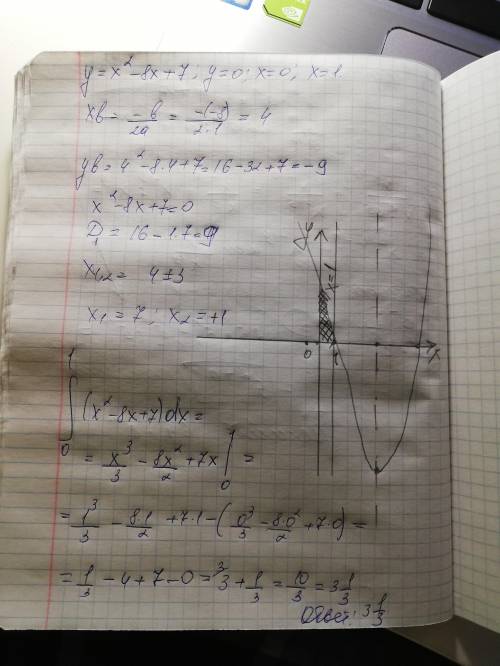 y = x² - 8x + 7; y = 0; x = 0; x = 1.
xв = -b/2a = -(-8)/2·1 = 4
yв = 4² - 8·4 + 7 = 16 - 32 + 7 = -9
x² - 8x + 7 = 0
D₁ = 16 - 1·7 = 9
x₁,₂ = 4 ± 3
x₁ = 7; x₂ = +1
y
x = 1
0
1
x
∫₀¹ (x² - 8x + 7) dx =
= x³/3 - 8x²/2 + 7x |₀¹ =
= 1³/3 - 8·1/2 + 7·1 - (0³/3 - 8·0²/2 + 7·0) =
= 1/3 - 4 + 7 - 0 = 3 + 1/3 = 10/3 = 3 1/3
Ответ: 3 1/3